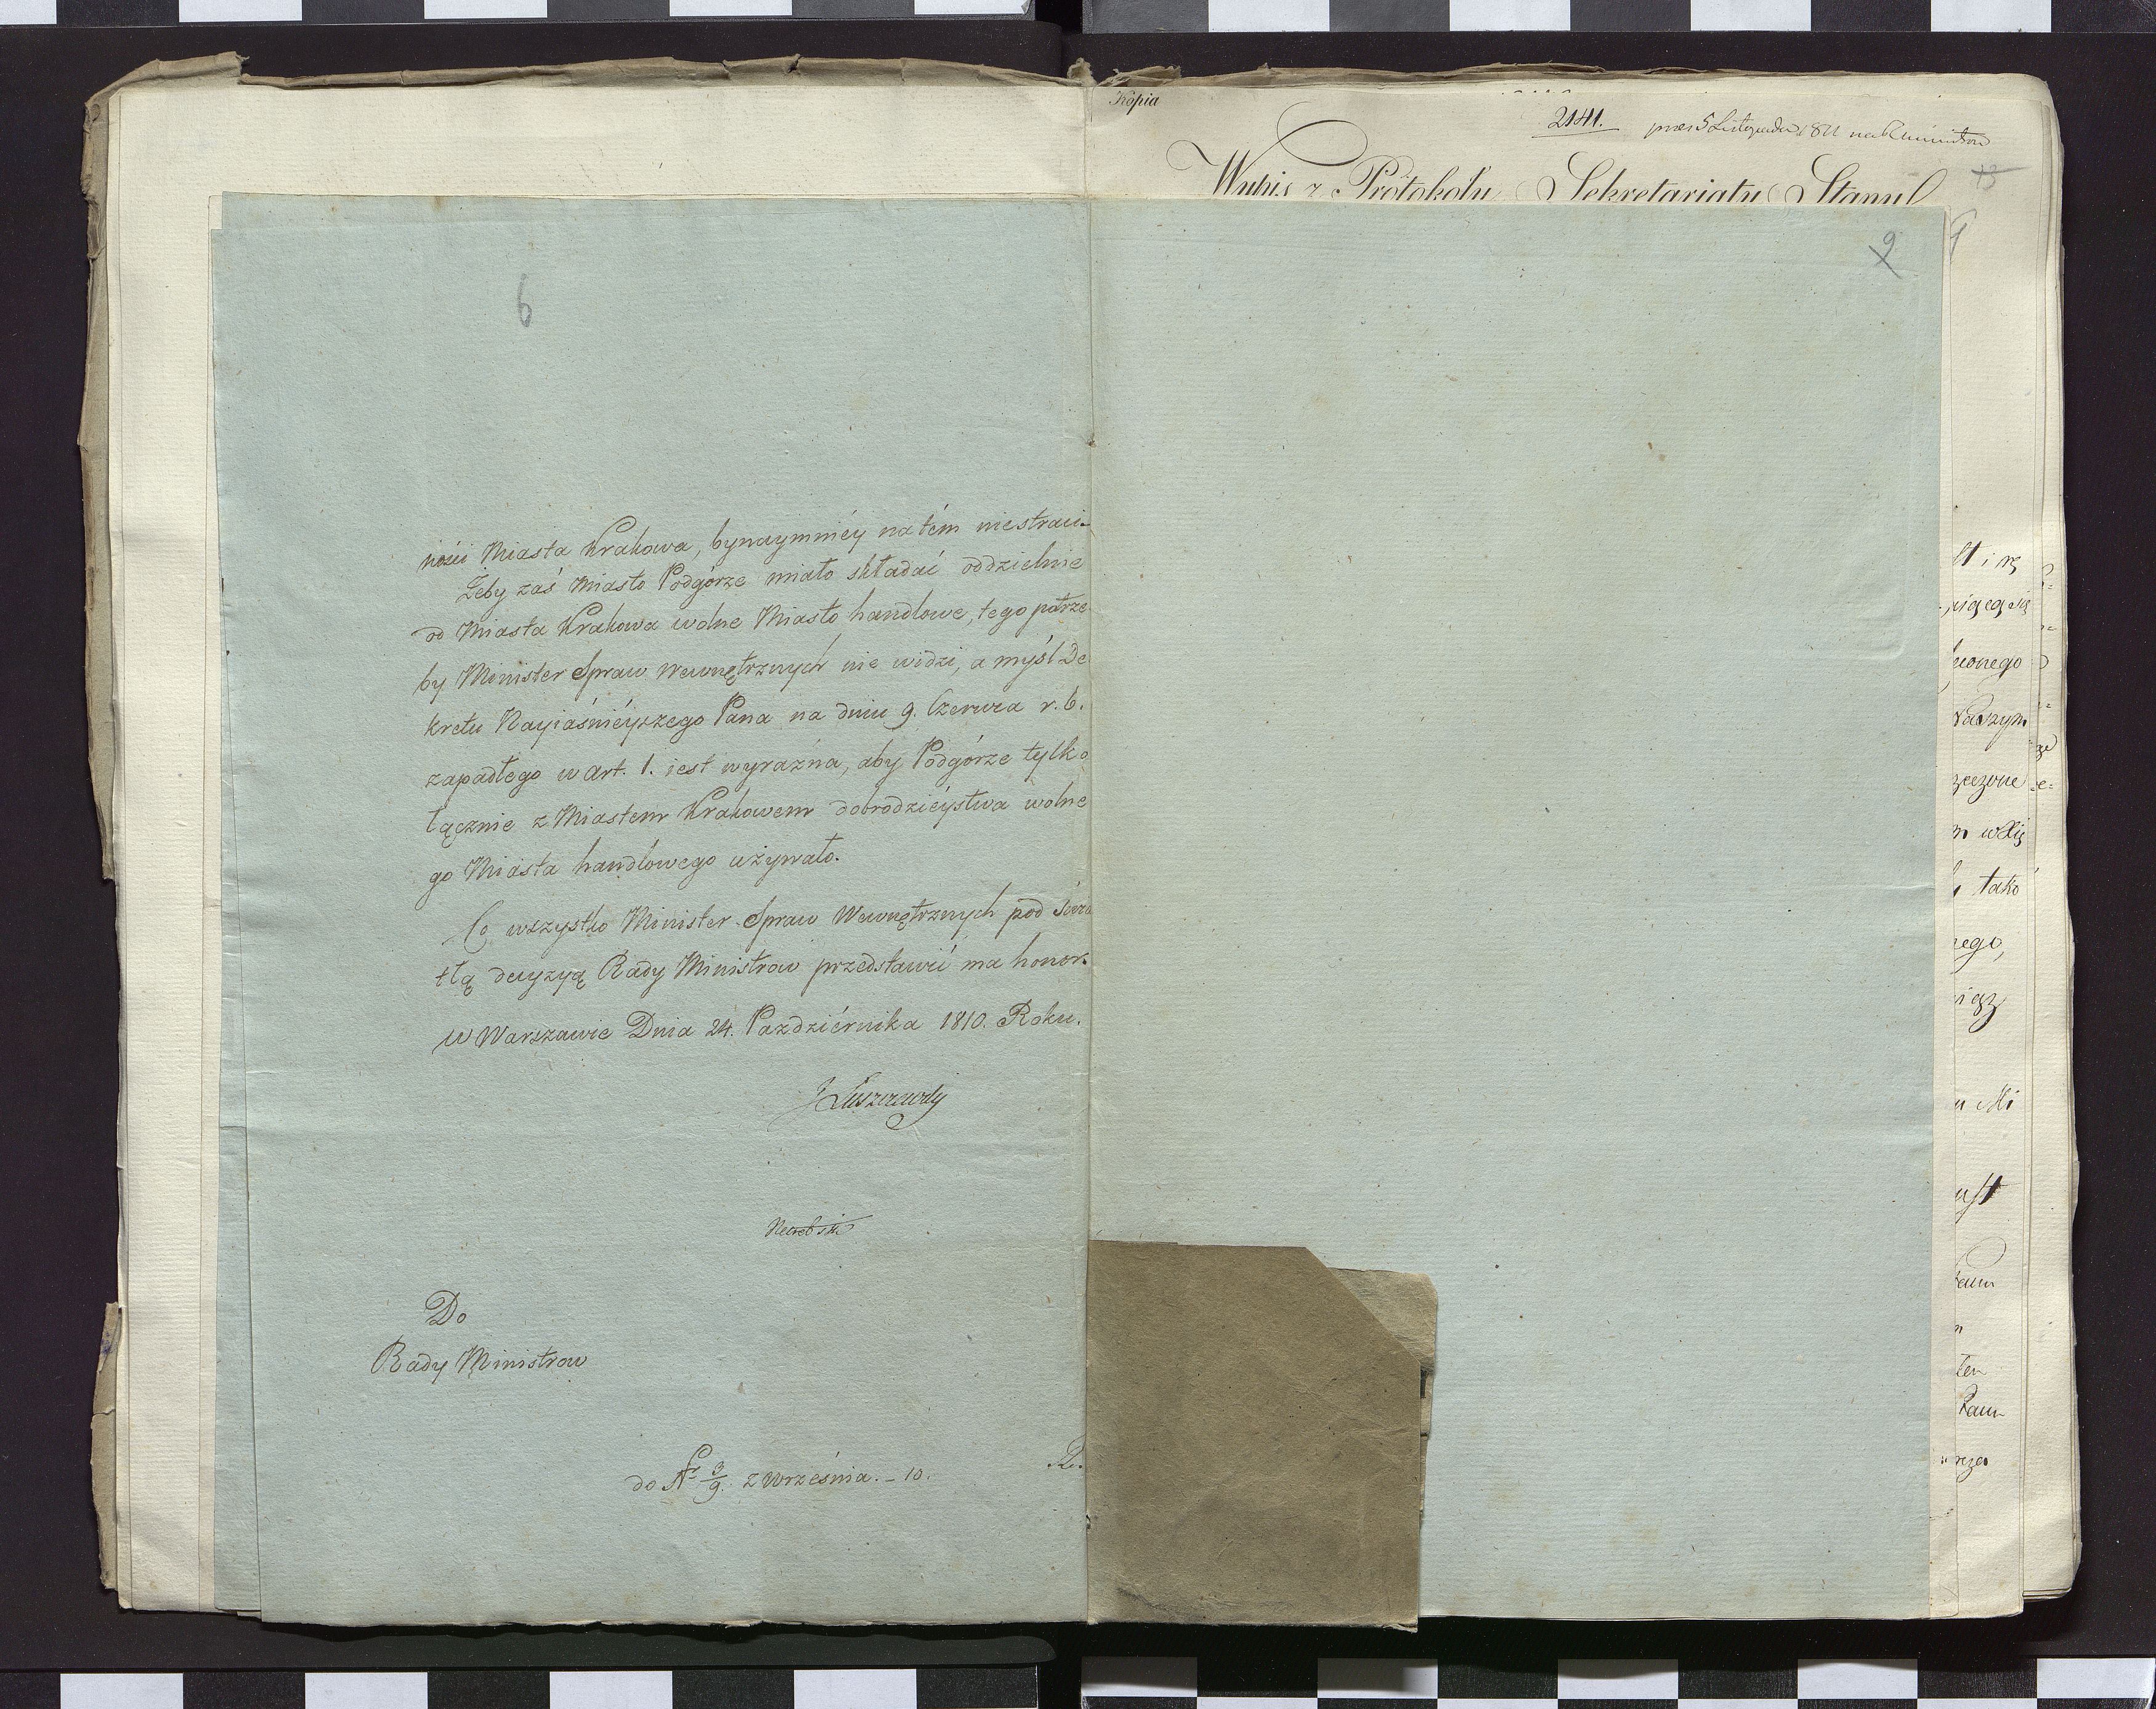 6
ności Miasta Krakowa, bynaymniéy na tém nie straci.
Żeby zaś Miasto Podgórze miało składać oddzielnie
od Miasta Krakowa wolne Miasto handlowe, tego potrze
by Minister Spraw Wewnętrznych nie widzi, a myśl De
kretu Nayiaśniéyszego Pana na dniu 9. Czerwca r. b.
zapadłego w art. 1. iest wyraźna, aby Podgórze tylko
łącznie z Miastem Krakowem dobrodziéystwa wolne
go Miasta handlowego używało.
Co wszystko Minister Spraw Wewnętrznych pod świa
tłą decyzyą Rady Ministrow przedstawić ma honor.
w Warszawie Dnia 24. Pazdziérnika 1810. Roku.
J Łuszczewski
Do
Rady Ministrow
do Nr 3/9. z Września. – 10.
Kopia
2141.
præs 5 Listopada 1811 na R. Ministrow
13
Wypis z Protokołu Sekretariatu Stanu
9
lt i rę
fionego
Naszym
zeczone
m wXię
tako
nego,
u Mi
ust
ten